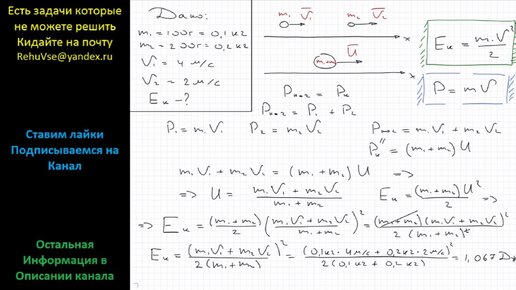 Есть задачи которые
не можете решить
Кидайте на почту
RehuVse@yandex.ru
Ставим лайки
Подписываемся на
Канал
Остальная
Информация в
Описании канала
Дано:
m₁ = 100г = 0,1 кг
m₂ = 200г = 0,2 кг
V₁ = 4 м/с
V₂ = 2 м/с
Eк - ?
m₁ V̄₁ m₂ V̄₂
x
Ū
x
Eк = mV²/2
P̄ = mV̄
Pнач = Pк
Pнач = P₁ + P₂
P₁ = m₁V₁ P₂ = m₂V₂ Pнач = m₁V₁ + m₂V₂
Pк = (m₁+m₂)U
m₁V₁ + m₂V₂ = (m₁+m₂)U =>
=> U = (m₁V₁ + m₂V₂)/(m₁ + m₂) Eк = (m₁+m₂)U²/2 =>
=> Eк = (m₁+m₂)/2 ((m₁V₁ + m₂V₂)/(m₁+m₂))² = (m₁+m₂)(m₁V₁ + m₂V₂)²/2(m₁+m₂)²
Eк = (m₁V₁ + m₂V₂)²/2(m₁+m₂) = (0,1кг·4м/с + 0,2кг·2м/с)²/2(0,1кг + 0,2кг) = 1,067 Дж